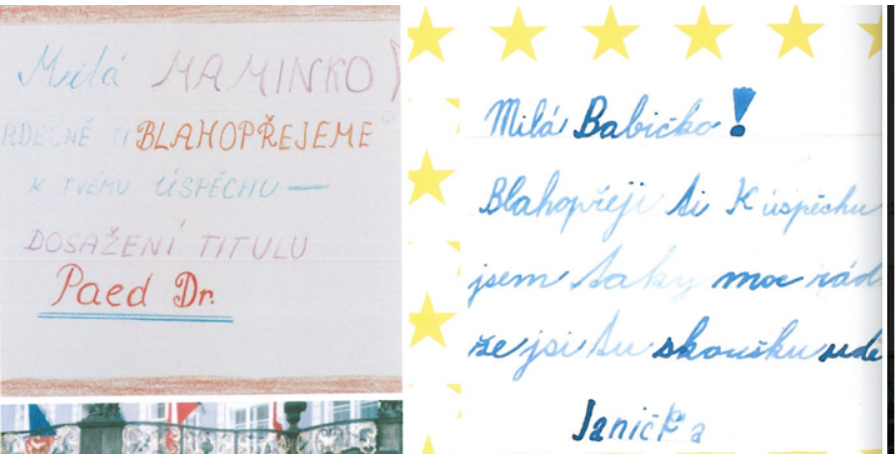 Milá MAMINKO!
RDEČNĚ TI BLAHOPŘEJEME
K TVÉMU ÚSPĚCHU —
DOSAŽENÍ TITULU
Paed Dr.
Milá Babičko!
Blahopřeji ti K úspěchu
jsem taky moc rád
že jsi tu skoušku udě
Janička